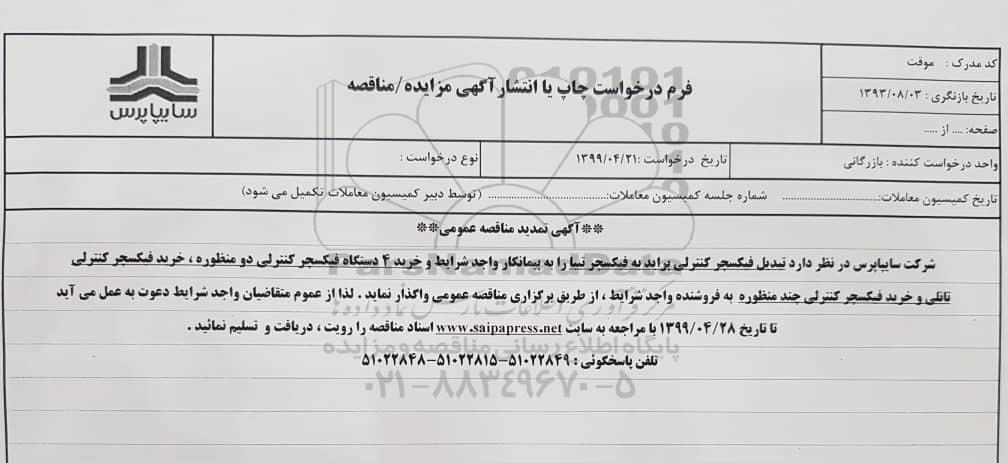 سایپاپرس
فرم درخواست چاپ یا انتشار آگهی مزایده/مناقصه
کد مدرک : موقت
تاریخ بازنگری : ۱۳۹۳/۰۸/۰۳
صفحه: .... از .....
واحد درخواست کننده : بازرگانی
تاریخ درخواست :۱۳۹۹/۰۴/۲۱
نوع درخواست :
تاریخ کمیسیون معاملات:............................ شماره جلسه کمیسیون معاملات:.................................. (توسط دبیر کمیسیون معاملات تکمیل می شود)
**آگهی تمدید مناقصه عمومی**
شرکت سایپاپرس در نظر دارد تبدیل فیکسچر کنترلی پراید به فیکسچر تیبا را به پیمانکار واجد شرایط و خرید ۴ دستگاه فیکسچر کنترلی دو منظوره ، خرید فیکسچر کنترلی
تانلی و خرید فیکسچر کنترلی چند منظوره به فروشنده واجد شرایط ، از طریق برگزاری مناقصه عمومی واگذار نماید . لذا از عموم متقاضیان واجد شرایط دعوت به عمل می آید
تا تاریخ ۱۳۹۹/۰۴/۲۸ با مراجعه به سایت www.saipapress.net اسناد مناقصه را رویت ، دریافت و تسلیم نمائید .
تلفن پاسخگوئی : ۵۱۰۲۲۸۴۹-۵۱۰۲۲۸۱۵-۵۱۰۲۲۸۴۸
ParsNamadData
مرکز فرآوری اطلاعات پارس نماد داده ها
پایگاه اطلاع رسانی مناقصه و مزایده
۰۲۱-۸۸۳۴۹۶۷۰-۵